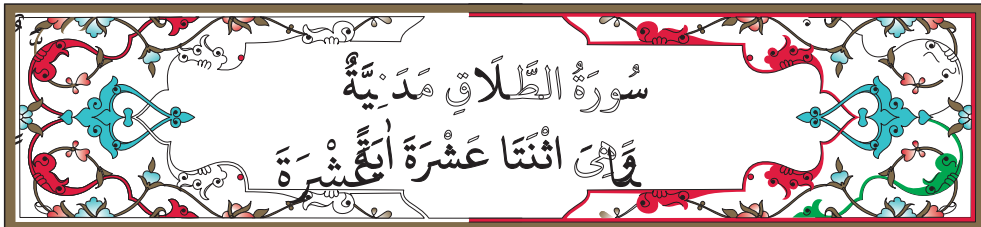 سُورَةُ الطَّلَاقِ مَدَنِيَّةٌ
وَهِيَ اثْنَتَا عَشْرَةَ اٰيَةً عَشْرَةَ